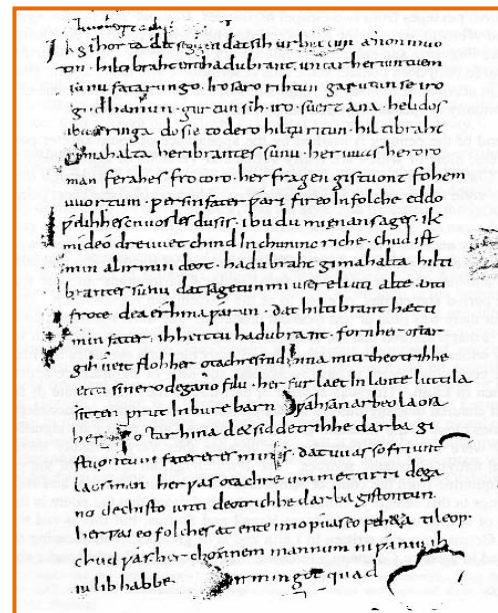 Ik gihorta dat seggen dat sih urhettun ænon muo
tin · hiltibraht enti hadubrant · untar heriun tuem
sunu fatarungo · iro saro rihtun garutun se iro
gudhamun · gurtun sih · iro · suert ana · helidos
ubar ringa do sie to dero hiltu ritun · hiltibraht
gimahalta heribrantes sunu · her uuas heroro
man ferahes frotoro · her fragen gistuont fohem
uuortum · ƿer sin fater ƿari fireo In folche eddo
ƿelihhes cnuosles du sis · ibu du mi enan sages · ik
mideo dre uuet chind In chunincriche · chud ist
min al irmin deot · hadubraht gimahalta hilti
brantes sunu dat sagetun mi usere liuti alte anti
frote dea erhina ƿarun · dat hiltibrant hætti
min fater · ih heittu hadubrant · forn her ostar
gihueit floh her otachres nid hina miti theotrihhe
enti sinero degano filu · her furlaet In lante luttila
sitten prut In bure barn unƿahsan arbeo laosa
her ostar hina det sid detrihhe darba gi
stuontum fatereres mines · dat uuas so friunt
laos man her ƿas otachre ummet tirri dega
no dechisto unti deotrichhe darba gistontun
her ƿas eo folches at ente imo ƿuas eo feheta ti leop
chud ƿas her chonnem mannum ni ƿaniu ih
iu lib habbe irmingot quad